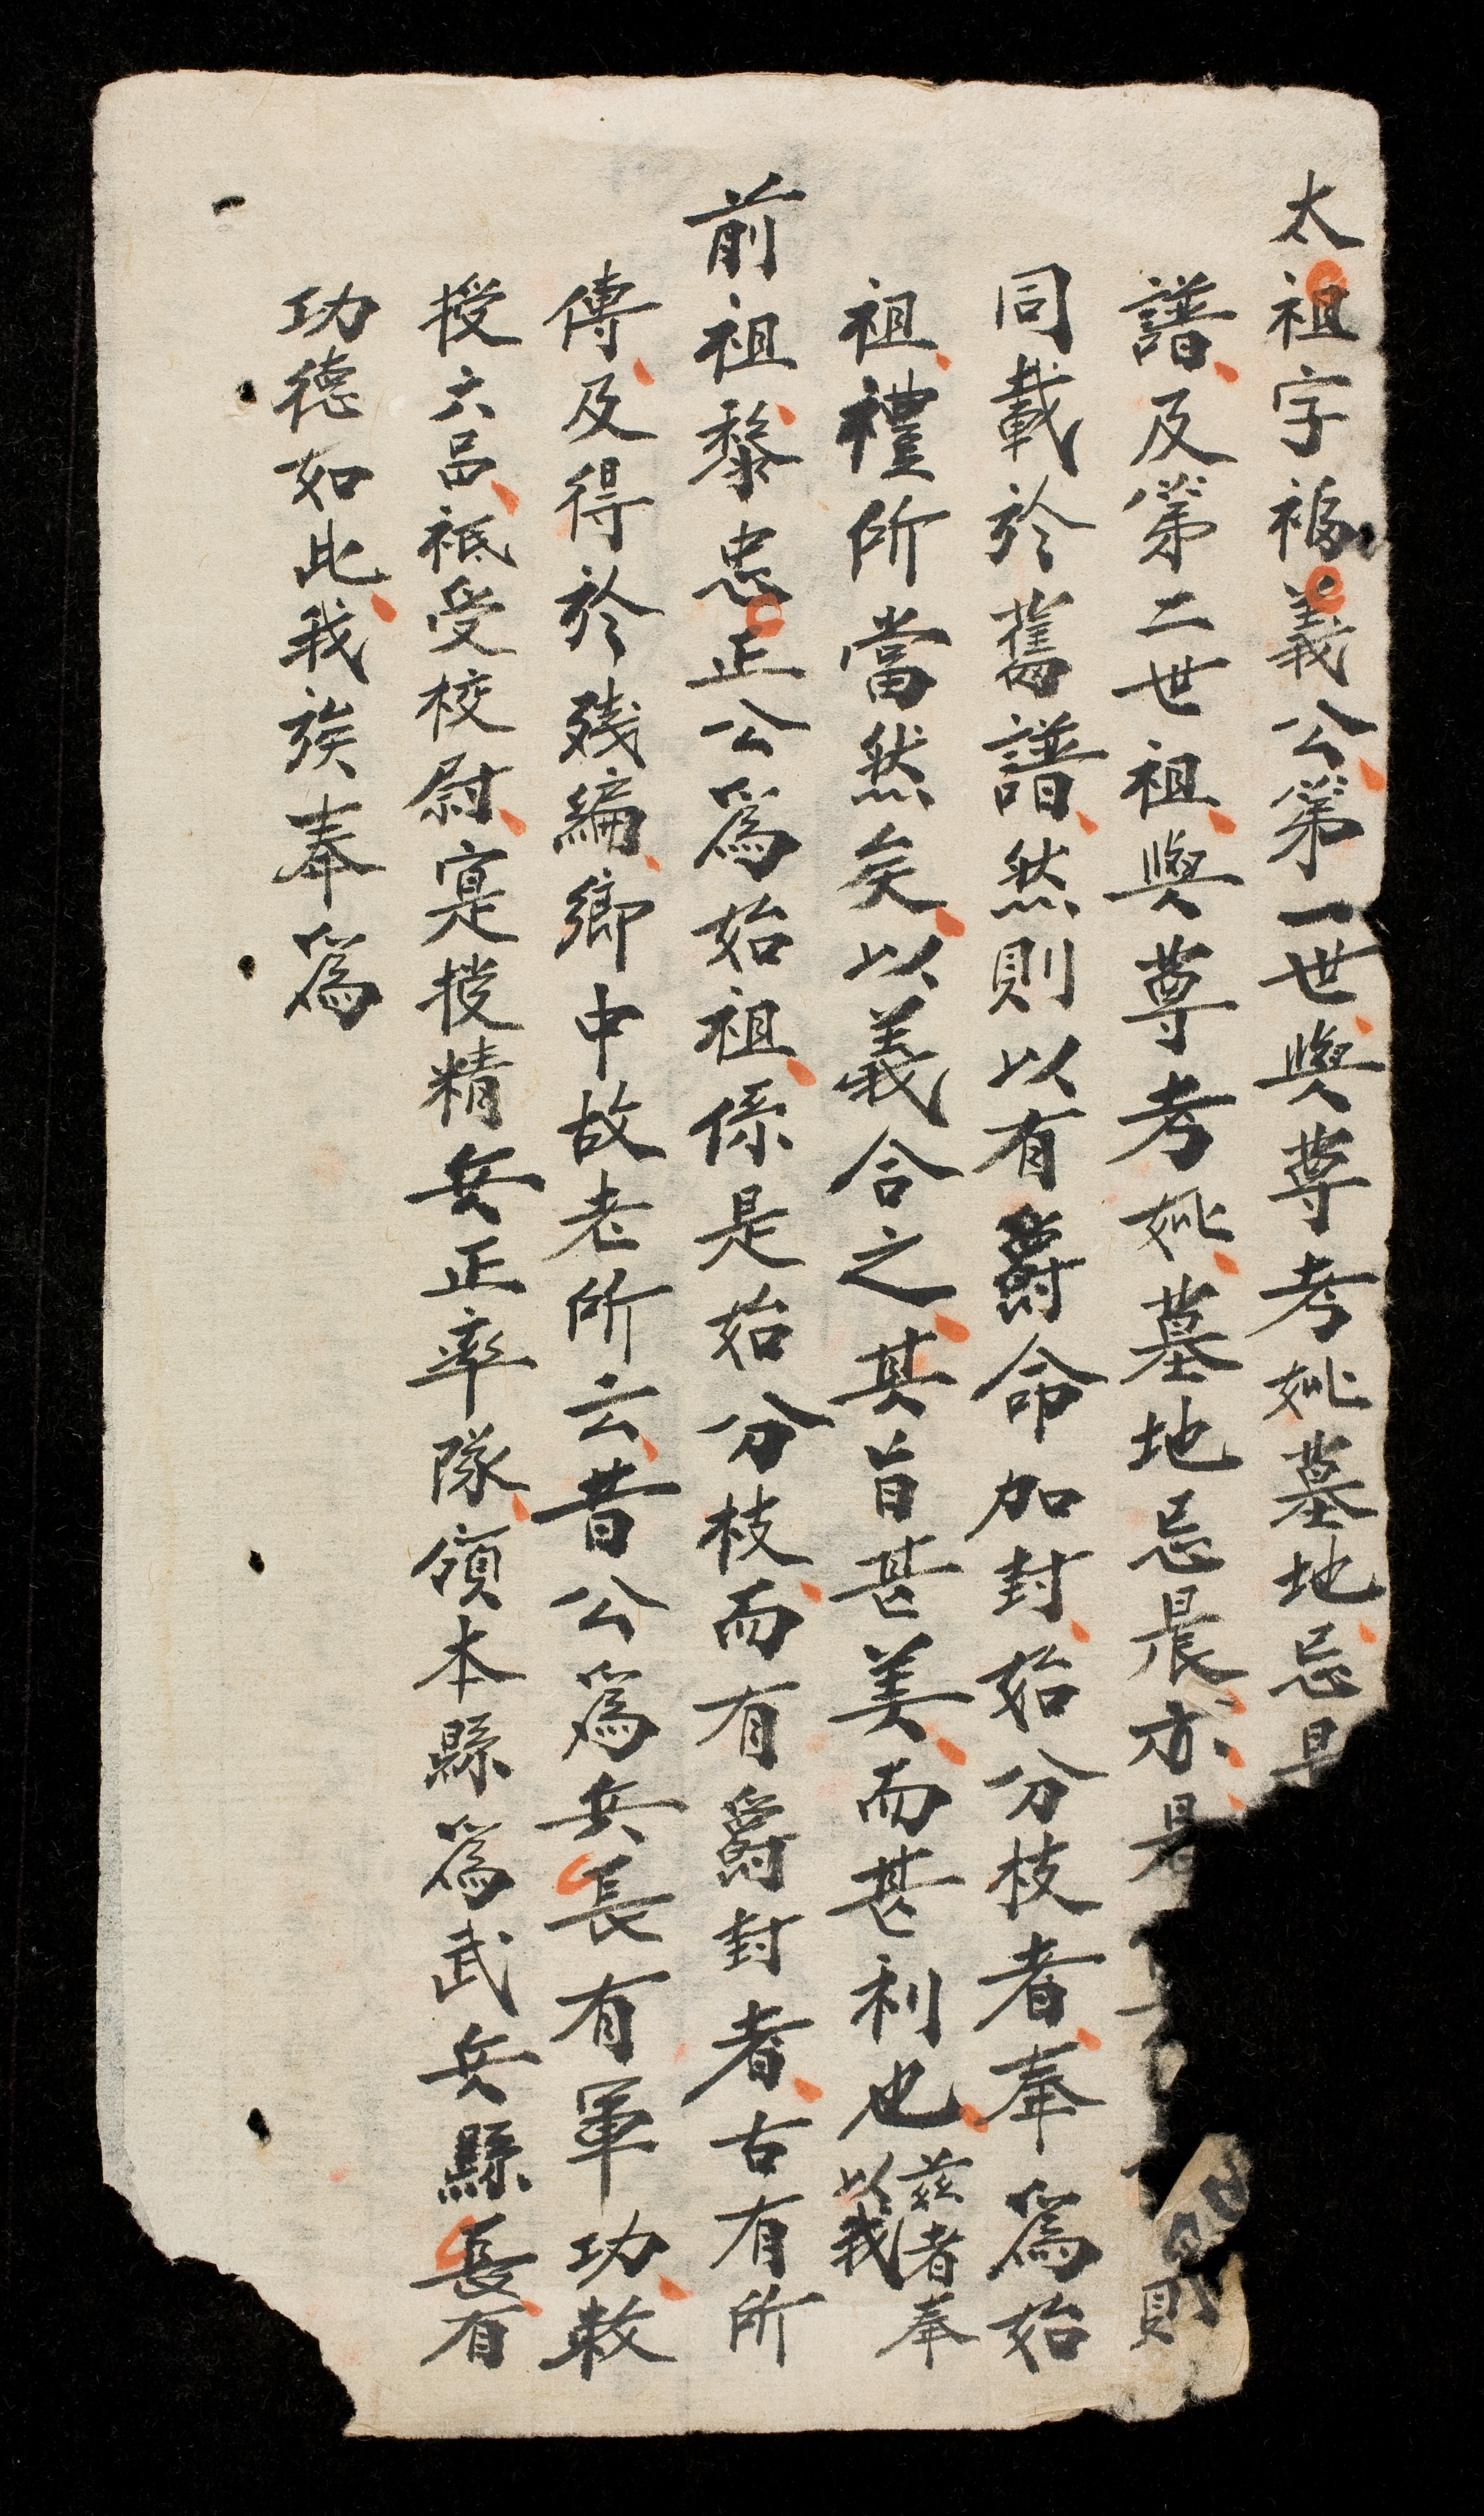 太祖字福義公第一世與尊考妣墓地忌
譜及第二世祖與尊考妣墓地忌晨亦是則
同載於舊譜然則以有爵命加封始分枝者奉為始
祖禮所當然矣以義合之其旨甚美而甚利也茲者奉以我
前祖黎忠正公為始祖係是始分枝而有爵封者古有所
傳及得於殘編鄉中故老所云昔公為兵長有軍功敕
授六品祗受校尉寔授精兵正率隊領本縣為武兵縣長有
功德如此我族奉為